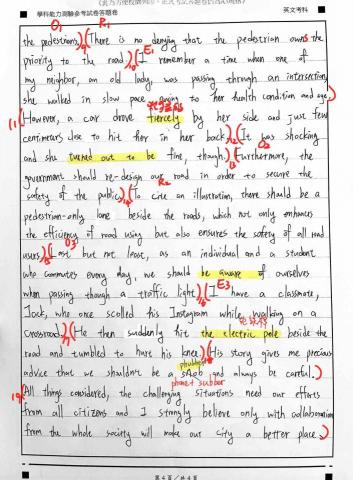 學科能力測驗參考試卷答題卷 英文考科
O1 R1
the pedestrians.) There is no denying that the pedestrian owns the
priority to the road.) E1 I remember a time when one of
my neighbor, an old lady, was passing through an intersection,
she walked in slow pace owing to her health condition and age.)
11 However, a car drove fiercely by her side and just few
centimeters close to hit her in her back.) It was shocking
and she turned out to be fine, though.) O2 Furthermore, the
government should re-design our road in order to secure the
safety of the public.) R2 To cite an illustration, there should be a
pedestrian-only lane beside the roads, which not only enhances
the efficiency of road using but also ensures the safety of all road
users.) O3 Last but not least, as an individual and a student
who commutes every day, we should be aware of ourselves
when passing though a traffic light.) E3 I have a classmate,
Jack, who once scolled his Instagram while walking on a
crossroad.) He then suddenly hit the electric pole beside the
road and tumbled to hurt his knee.) His story gives me precious
advice that we shouldn't be a and always be careful.)
phubber
phone + snubber
19 All things considered, the challenging situations need our efforts
from all citizens and I strongly believe only with collaboration
from the whole society will make our city a better place.)
第4頁/共4頁